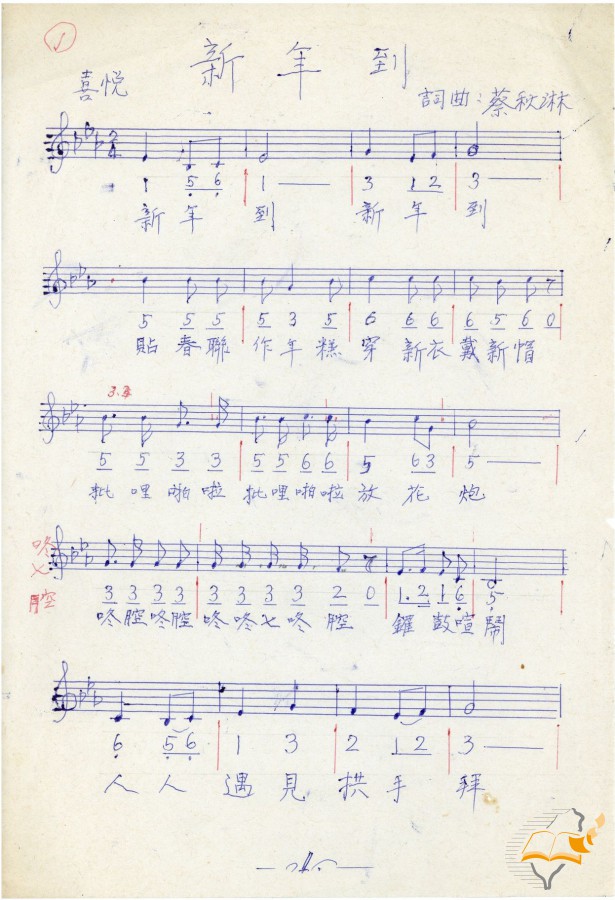 1
新年到
喜悅
詞曲:蔡秋淋
2/4
1 5 6 1 — 3 1 2 3 —
新年 到 新年 到
5 5 5 5 3 5 6 6 6 6 5 6 0
貼春聯作年糕穿新衣戴新帽
3.3
5 5 3 3 5 5 6 6 5 6 3 5 —
批哩啪啦批哩啪啦放花炮
咚
七
腔
3 3 3 3 3 3 3 3 2 0 1. 2 1 6 5
咚腔咚腔咚咚七咚腔 鑼鼓喧鬧
6 5 6 1 3 2 1 2 3 —
人人遇見拱手拜